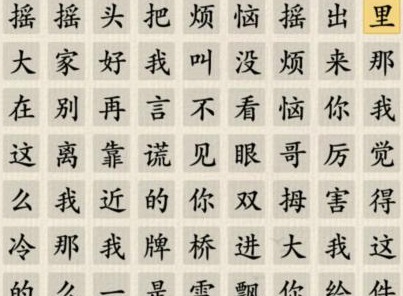 摇摇头把烦恼摇出里
大家好我叫没烦来那
在别再言不看恼你我
这离靠谎见眼哥厉觉
么我近的你双拇害得
冷那我牌桥进大我这
的么一是雪飘你给件